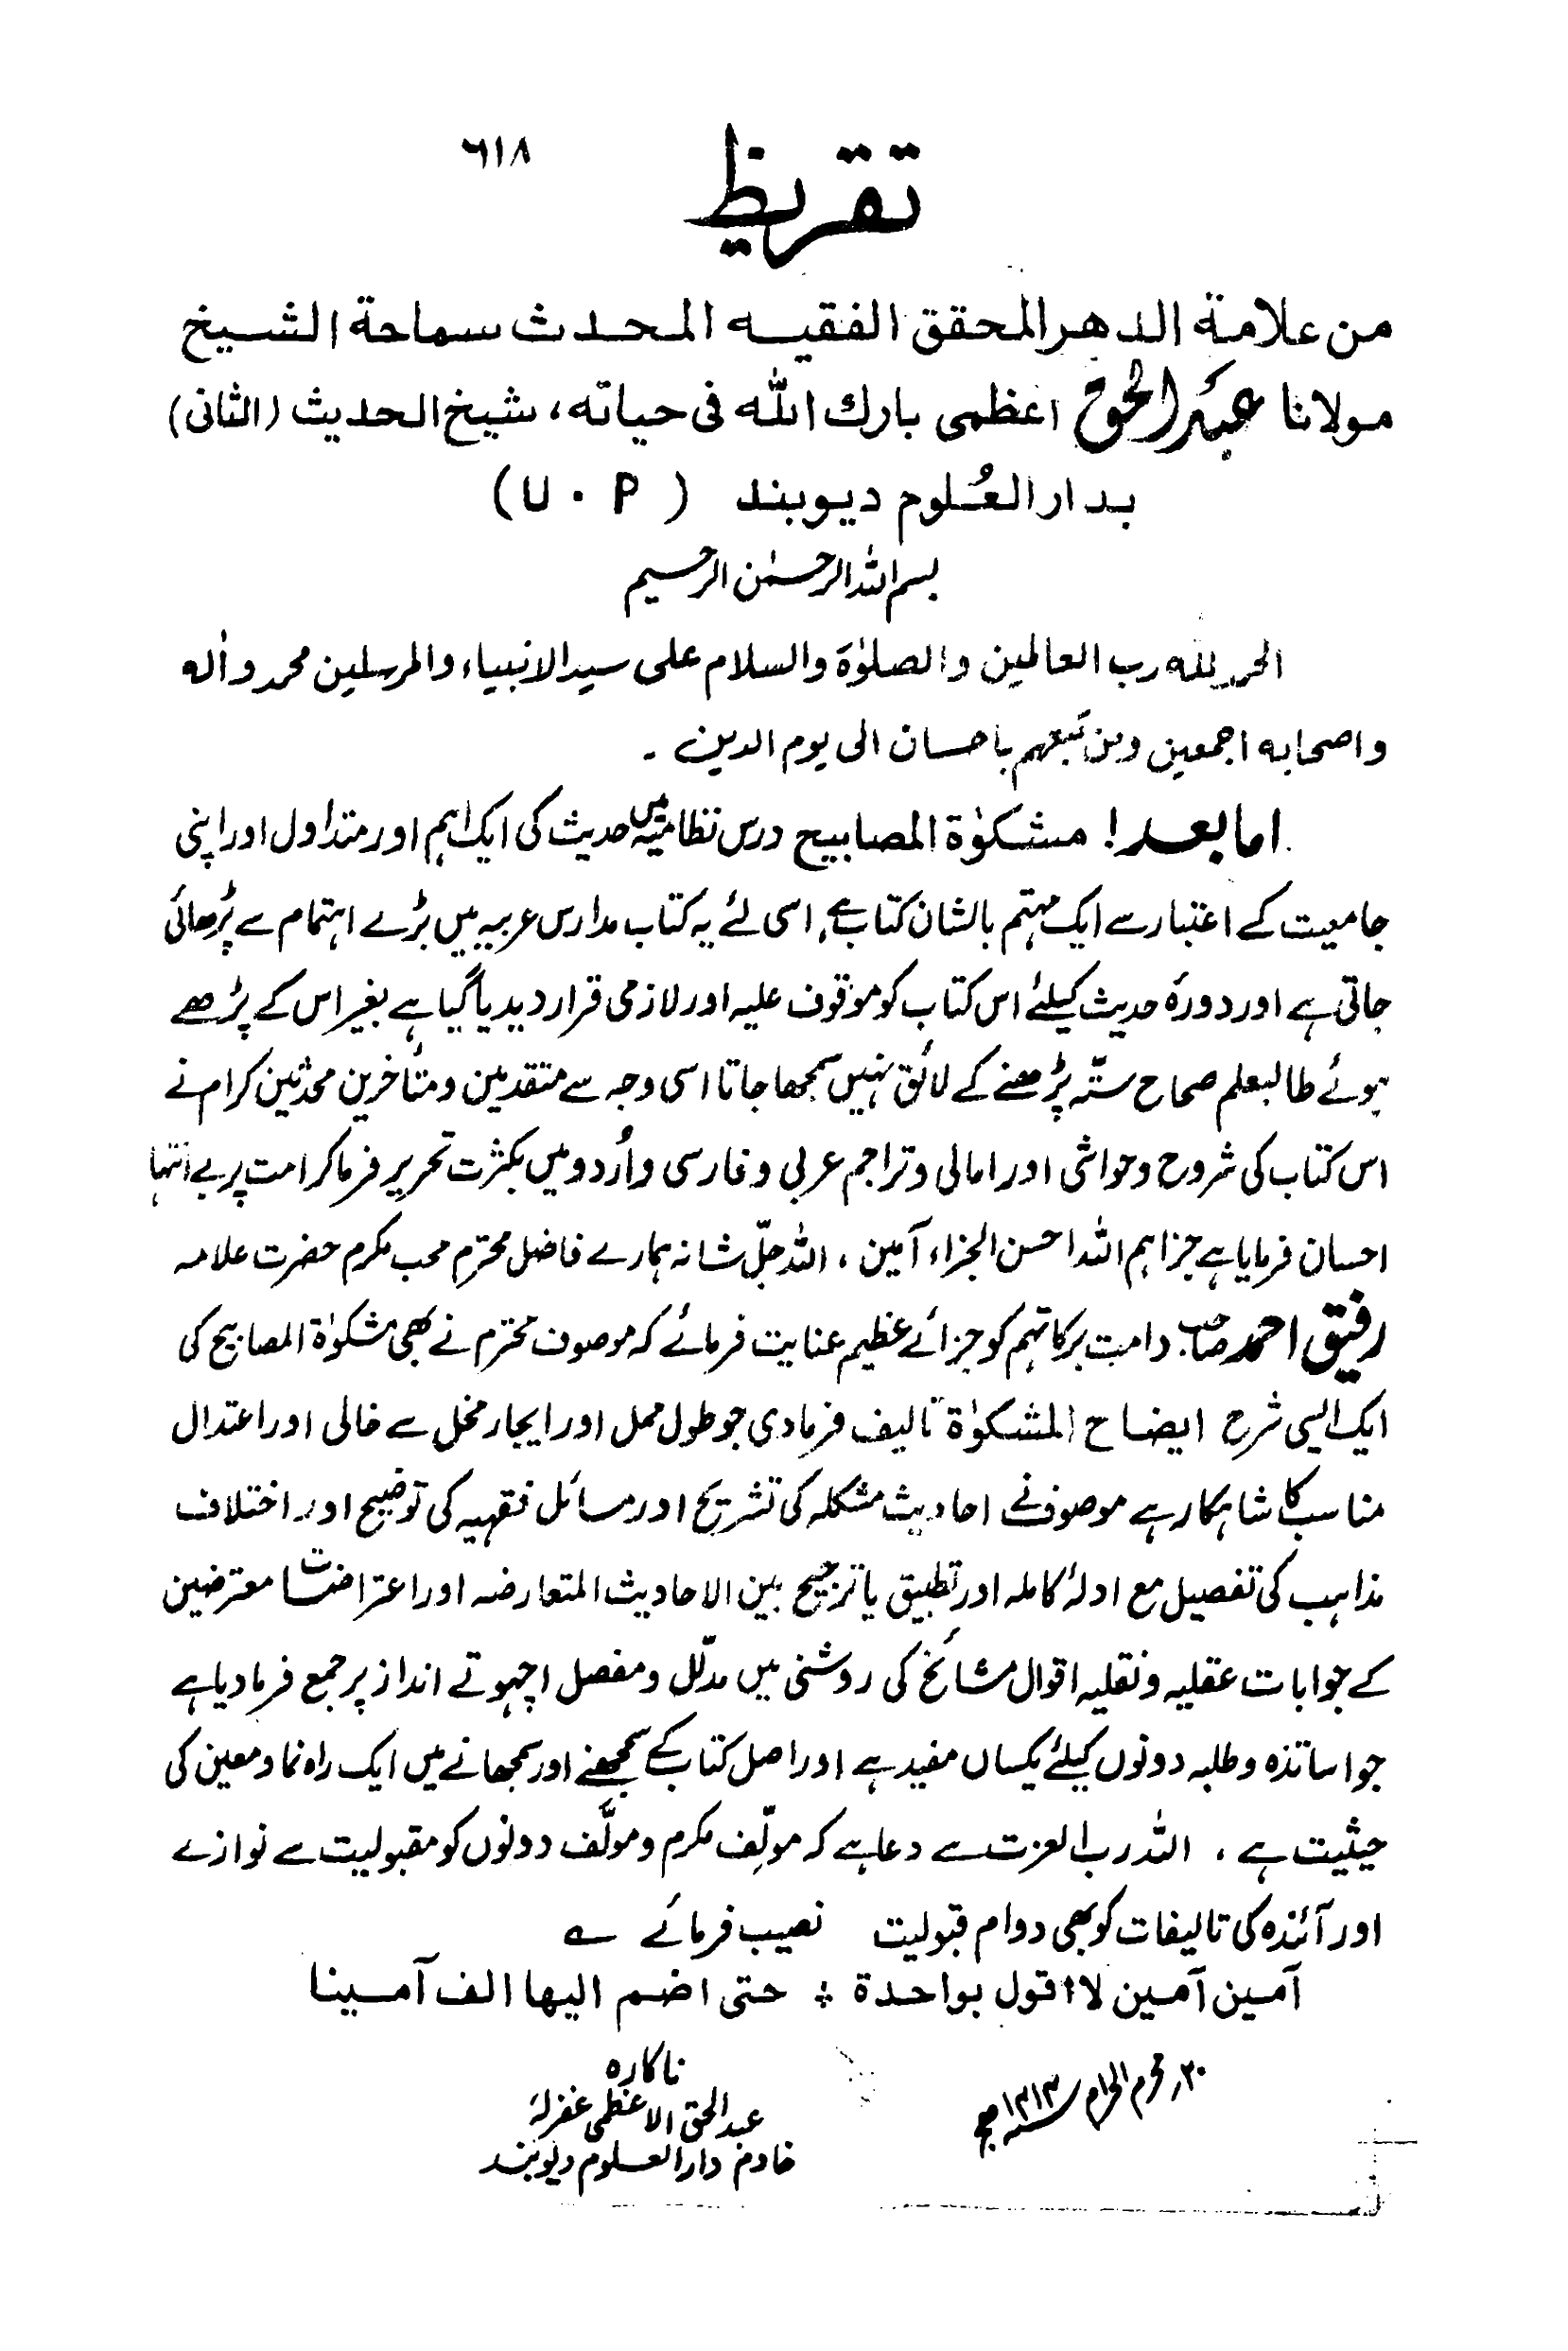 ٦١٨
تقریظ
من علامة الدهر المحقق الفقيه المحدث سماحة الشيخ
مولانا عبد الحق اعظمی بارك الله فی حیاته، شیخ الحدیث (الثانی)
بدار العُلوم دیوبند (U . P)
بسم الله الرحمٰن الرحیم
الحمد لله رب العالمین والصلوٰة والسلام علی سید الانبیاء والمرسلین محمد واٰله
واصحابه اجمعین ومن تبعهم باحسان الی یوم الدین ۔
اما بعد! مشکوٰة المصابیح درس نظامیہ میں حدیث کی ایک اہم اور متداول اور اپنی
جامعیت کے اعتبار سے ایک مہتم بالشان کتاب ہے، اسی لئے یہ کتاب مدارس عربیہ میں بڑے اہتمام سے پڑھائی
جاتی ہے اور دورۂ حدیث کیلئے اس کتاب کو موقوف علیہ اور لازمی قرار دیدیا گیا ہے بغیر اس کے پڑھے
ہوئے طالبعلم صحاح ستّہ پڑھنے کے لائق نہیں سمجھا جاتا اسی وجہ سے متقدمین ومتأخرین محدثین کرام نے
اس کتاب کی شروح وحواشی اور امالی وتراجم عربی وفارسی واُردو میں بکثرت تحریر فرماکر امت پر بے انتہا
احسان فرمایا ہے جزاہم اللہ احسن الجزاء آمین ، اللہ جلّ شانہ ہمارے فاضل محترم محب مکرم حضرت علامہ
رفیق احمد صاحب دامت برکاتہم کو جزائے عظیم عنایت فرمائے کہ موصوف محترم نے بھی مشکوٰۃ المصابیح کی
ایک ایسی شرح ایضاح المشکوٰة تالیف فرمادی جو طول ممل اور ایجاز مخل سے خالی اور اعتدال
مناسب کا شاہکار ہے موصوف نے احادیث مشکلہ کی تشریح اور مسائل فقہیہ کی توضیح اور اختلاف
مذاہب کی تفصیل مع ادلۂ کاملہ اور تطبیق یا ترجیح بین الاحادیث المتعارضہ اور اعتراضات معترضین
کے جوابات عقلیہ ونقلیہ اقوال مشائخ کی روشنی میں مدلّل ومفصل اچھوتے انداز پر جمع فرمادیا ہے
جو اساتذہ وطلبہ دونوں کیلئے یکساں مفید ہے اور اصل کتاب کے سمجھنے اور سمجھانے میں ایک راہ نما ومعین کی
حیثیت ہے ، اللہ رب العزت سے دعا ہے کہ مولّف مکرم ومولَّف دونوں کو مقبولیت سے نوازے
اور آئندہ کی تالیفات کو بھی دوام قبولیت نصیب فرمائے ؎
آمین آمین لا اقول بواحدة ؞ حتی اضم الیها الف آمینا
ناکارہ
عبدالحق الاعظمی غفرلہٗ
خادم دارالعلوم دیوبند
۲۰؍ محرم الحرام ۱۴۱۳ھ